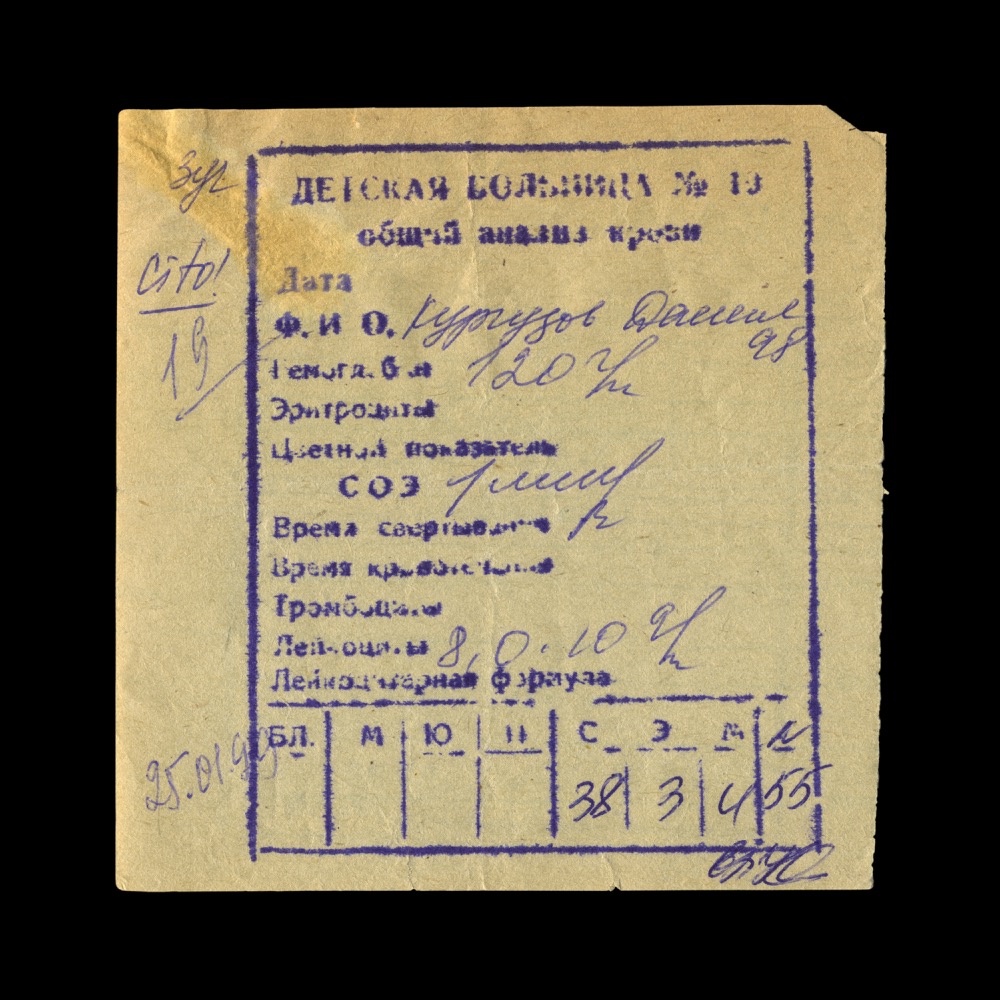 Зуг
ДЕТСКАЯ БОЛЬНИЦА № 19
общий анализ крови
Cito!
Дата
19
Ф. И О. Кургузов Даниил
98
Гемоглобин 120 г/л
Эритроциты
Цветной показатель
СОЭ 1 мм/
Время свертывания
Время кровотечения
Тромбоциты
Лейкоциты 8,0·10 9/л
Лейкоцитарная формула
БЛ. М Ю П С Э М Л
38 3 4 55
25.01.99